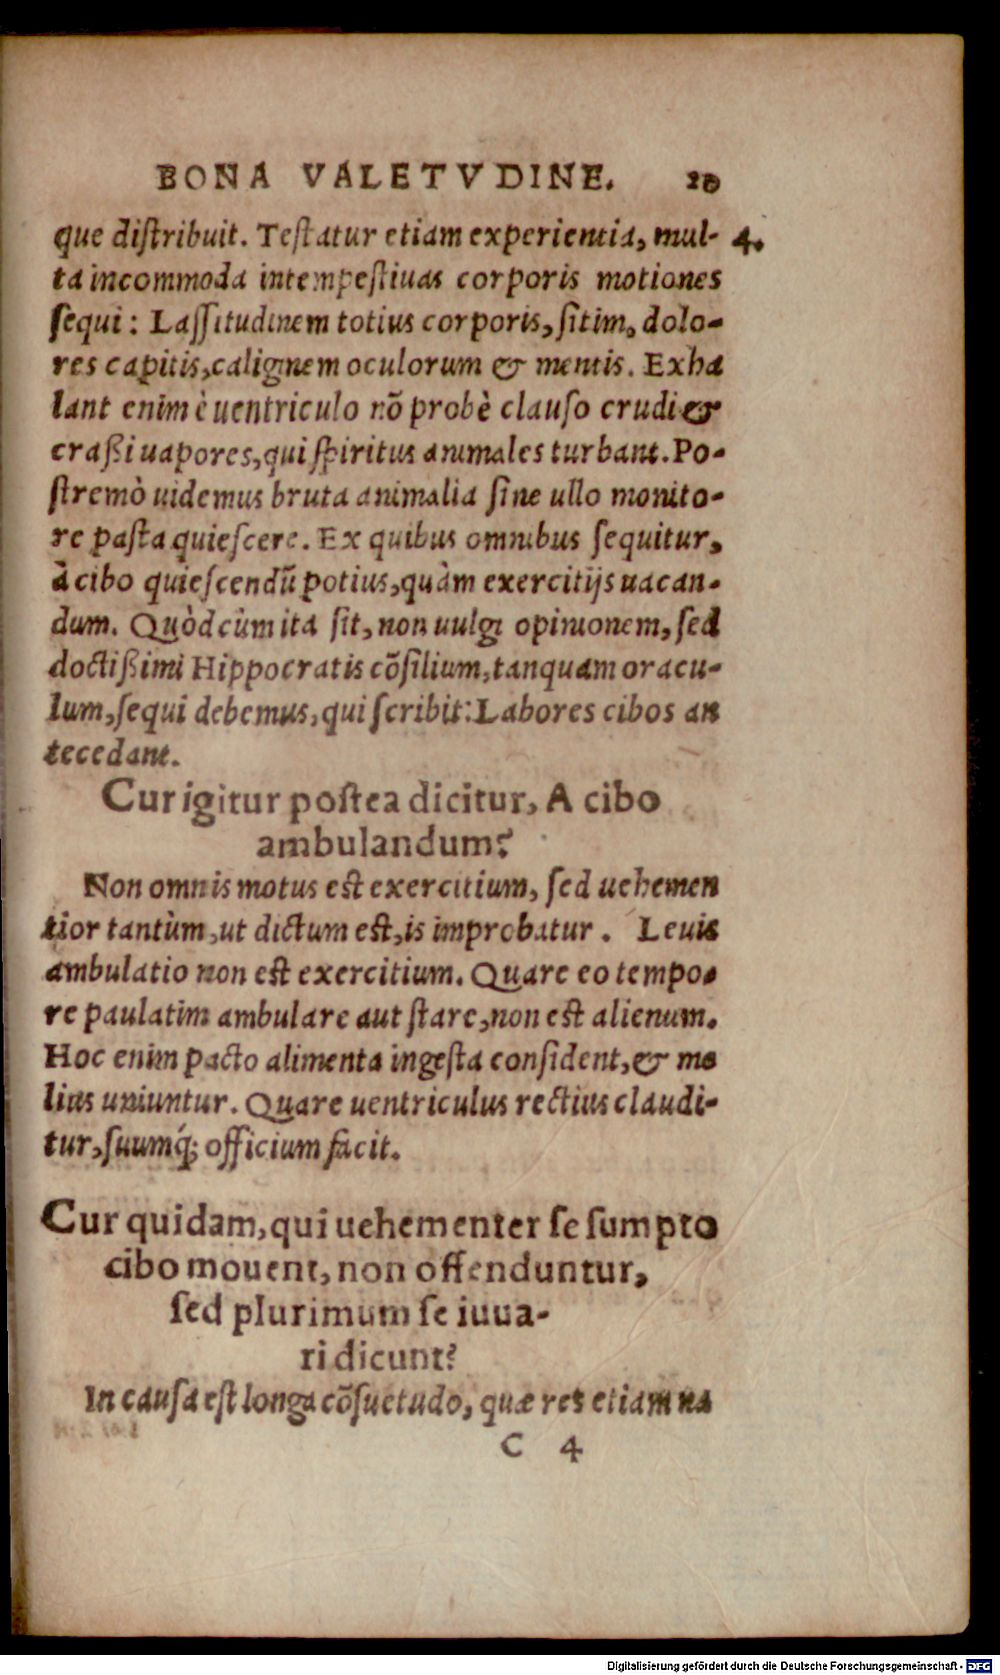 BONA VALETVDINE. 20
que diſtribuit. Teſtatur etiam experientia, mul- 4.
ta incommoda intempeſtiuas corporis motiones
ſequi: Laſſitudinem totius corporis, ſitim, dolo-
res capitis, calignem oculorum & mentis. Exha
lant enim è uentriculo nō probè clauſo crudi &
craßi uapores, qui ſpiritus animales turbant. Po-
ſtremò uidemus bruta animalia ſine ullo monito-
re paſta quieſcere. Ex quibus omnibus ſequitur,
à cibo quieſcendū potius, quàm exercitijs uacan-
dum. Quòd cùm ita ſit, non uulgi opinionem, ſed
doctißimi Hippocratis cōſilium, tanquam oracu-
lum, ſequi debemus, qui ſcribit: Labores cibos an
tecedant.
Cur igitur poſtea dicitur, A cibo
ambulandum?
Non omnis motus eſt exercitium, ſed uehemen
tior tantùm, ut dictum eſt, is improbatur. Leuis
ambulatio non eſt exercitium. Quare eo tempo-
re paulatim ambulare aut ſtare, non eſt alienum.
Hoc enim pacto alimenta ingeſta conſident, & me
lius uniuntur. Quare uentriculus rectius claudi-
tur, ſuumq́; officium facit.
Cur quidam, qui uehementer ſe ſumpto
cibo mouent, non offenduntur,
ſed plurimum ſe iuua-
ri dicunt?
In cauſa eſt longa cōſuetudo, quæ res etiam na
C 4
Digitalisierung gefördert durch die Deutsche Forschungsgemeinschaft - DFG